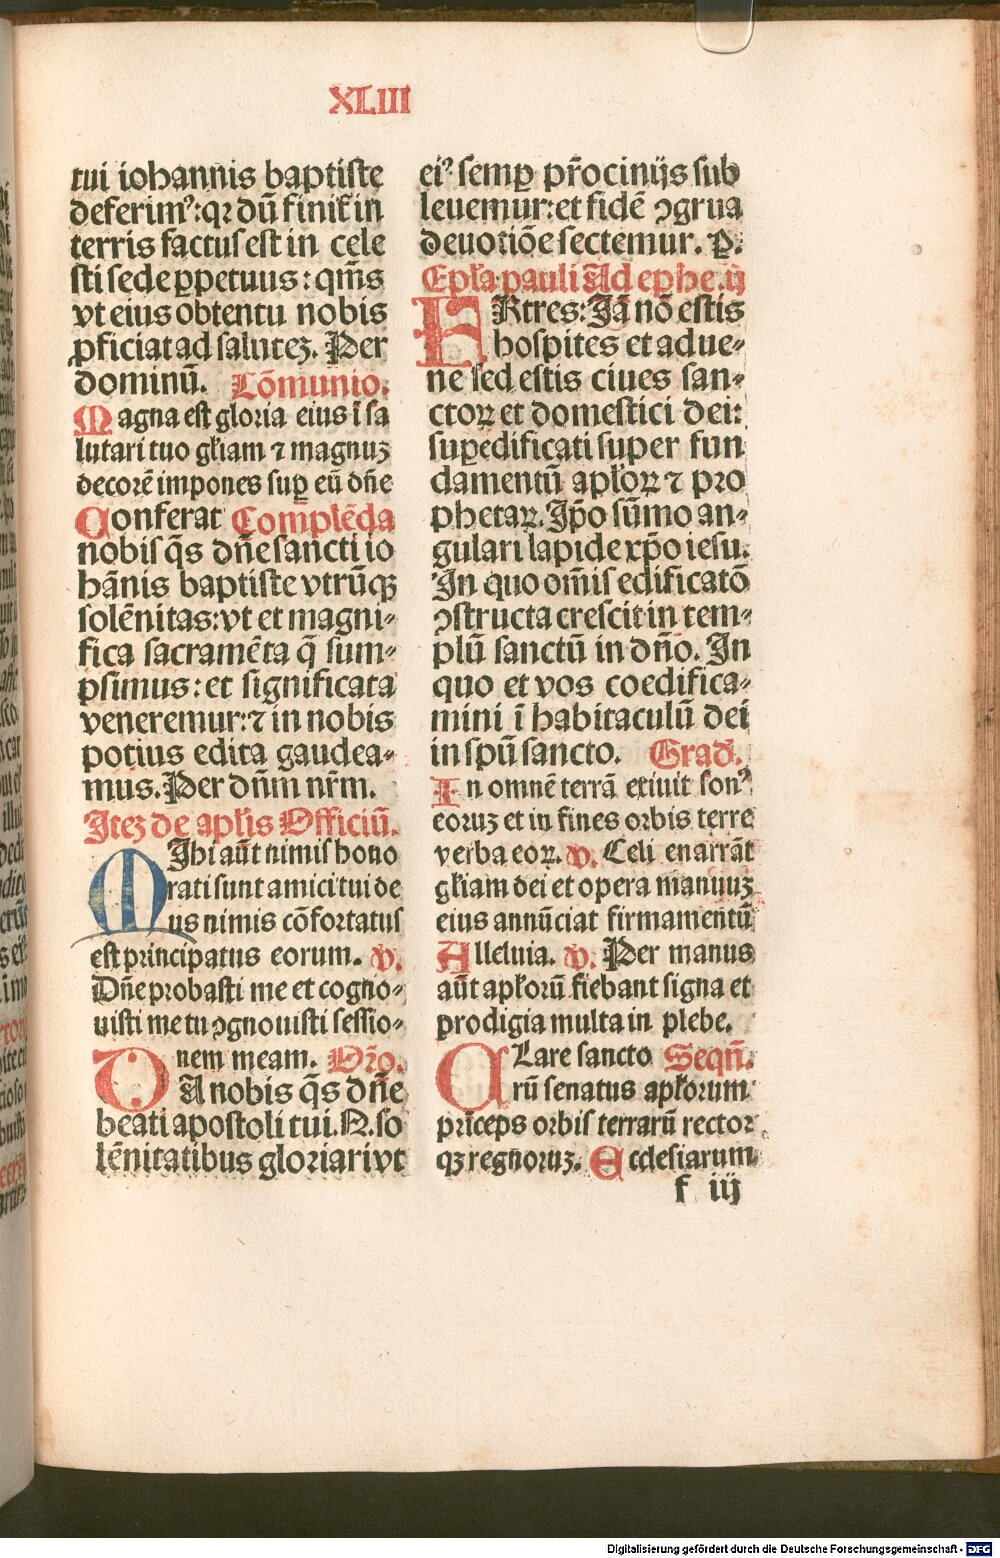 XLIII
tui iohannis baptiste
deferimꝰ: qꝛ dū finit̄ in
terris factus est in cele
sti sede ꝑpetuus: qm̄s
vt eius obtentu nobis
ꝓficiat ad salutez. Per
dominū. Cōmunio.
Magna est gloria eius ī sa
lutari tuo gl'iam ⁊ magnuz
decorē impones suꝑ eū dn̄e
Conferat Complēda
nobis q̄s dn̄e sancti io
hānis baptiste vtrūqꝫ
solēnitas: vt et magni⸗
fica sacramēta q̄ sum⸗
psimus: et significata
veneremur: ⁊ in nobis
potius edita gaudea⸗
mus. Per dn̄m nr̄m.
Itez de apl'is Officiū.
MIhi aūt nimis hono
rati sunt amici tui de
us nimis cōfortatus
est principatus eorum. v.
Dn̄e probasti me et cogno⸗
uisti me tu ꝯgnouisti sessio⸗
nem meam. Or̄o.
DA nobis q̄s dn̄e
beati apostoli tui. N. so
lēnitatibus gloriari vt
eiꝰ semꝑ pr̄ocinijs sub
leuemur: et fidē ꝯgrua
deuotiōe sectemur. P.
Epl'a pauli Ad ephe. ij
FRtres: Jā nō estis
hospites et adue⸗
ne sed estis ciues san⸗
ctoꝝ et domestici dei:
suꝑedificati super fun
damentū apl'oꝝ ⁊ pro
phetaꝝ. Ip̄o sūmo an⸗
gulari lapide xp̄o iesu.
In quo om̄is edificatō
ꝯstructa crescit in tem⸗
plū sanctū in dn̄o. In
quo et vos coedifica⸗
mini ī habitaculū dei
in spū sancto. Grad'.
In omnē terrā exiuit sonꝰ
eoruz et in fines orbis terre
verba eoꝝ. v. Celi enarrāt
gl'iam dei et opera manuuz
eius annūciat firmamentū
Alleluia. v. Per manus
aūt apl'orū fiebant signa et
prodigia multa in plebe.
CLare sancto Seqn̄.
rū senatus apl'orum
prīceps orbis terrarū rector
qꝫ regnoruz. Ecclesiarum
f iij
Digitalisierung gefördert durch die Deutsche Forschungsgemeinschaft - DFG